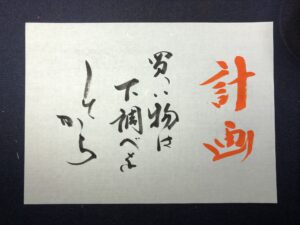 計画
買い物は
下調べを
してから